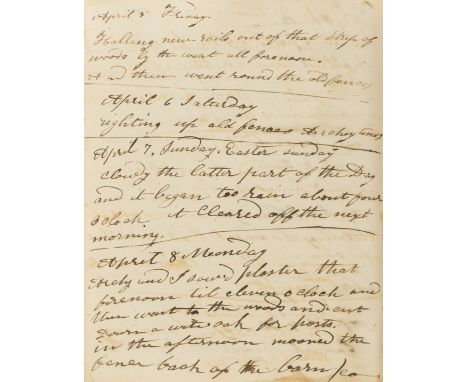 April 5 Friday.
Halling new rails out of that strip of
woods by the west all forenoon.
And then went round the old fences
April 6 Saturday
righting up old fences Archey &
April 7, Sunday. Easter sunday
cloudy the latter part of the Day
and it began too rain about four
oclock it Cleared off the next
morning.
April 8 Monday
Archy and I sowed plaster that
forenoon til eleven oclock and
then went to the woods and cut
down a wite oak for posts.
in the afternoon mooved the
fence back of the barn